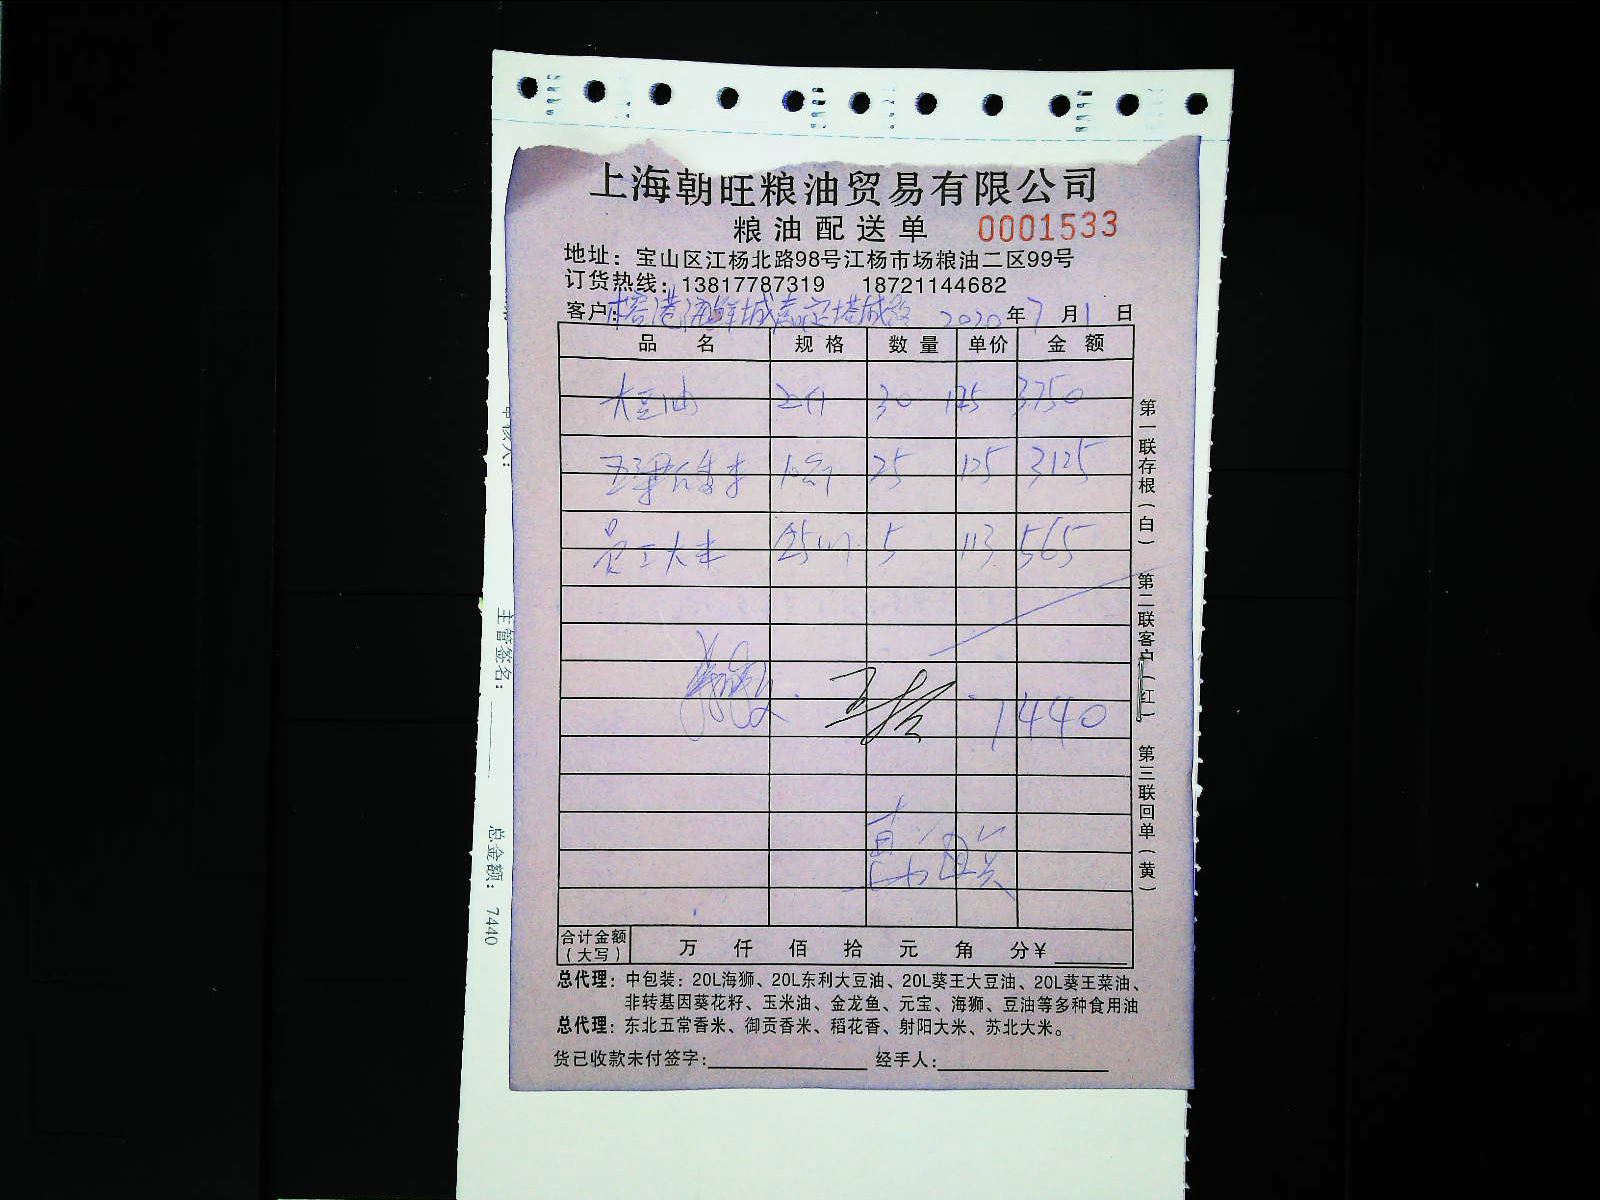 上海朝旺粮油贸易有限公司
粮油配送单 0001533
地址：宝山区江杨北路98号江杨市场粮油二区99号
订货热线：13817787319 18721144682
客户: 港海鲜城嘉定塔城路 2020年7月1日
品名 规格 数量 单价 金额
大豆油 30 125 3750
25 125 3125
员工大米 5 113 565
7440
合计金额（大写） 万 仟 佰 拾 元 角 分￥
总代理：中包装：20L海狮、20L东利大豆油、20L葵王大豆油、20L葵王菜油、
非转基因葵花籽、玉米油、金龙鱼、元宝、海狮、豆油等多种食用油
总代理：东北五常香米、御贡香米、稻花香、射阳大米、苏北大米。
货已收款未付签字: 经手人:
第一联存根（白） 第二联客户（红） 第三联回单（黄）
主管签名：
总金额： 7440